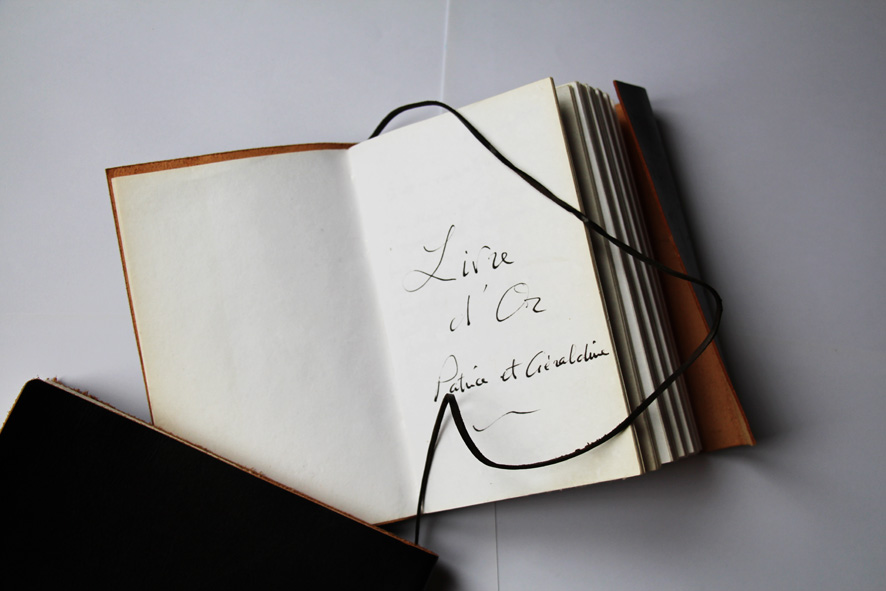 Livre
d'Or
Patrice et Géraldine